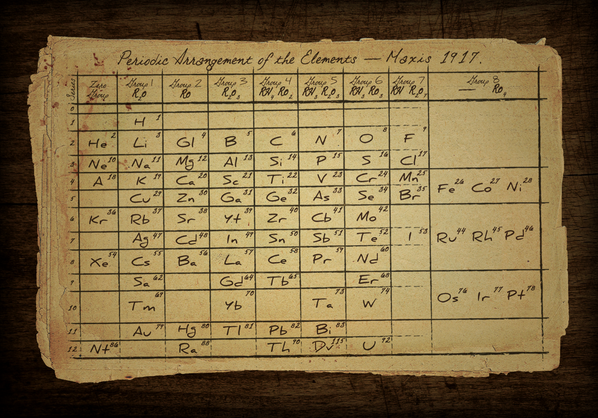 Periodic Arrangement of the Elements — Maxis 1917.
Series Zero Group Group 1 R₂O Group 2 RO Group 3 R₂O₃ Group 4 RH₄ RO₂ Group 5 RH₃ R₂O₅ Group 6 RH₂ RO₃ Group 7 RH R₂O₇ Group 8 — RO₄
0
1 H 1
2 He 2 Li 3 Gl 4 B 5 C 6 N 7 O 8 F 9
3 Ne 10 Na 11 Mg 12 Al 13 Si 14 P 15 S 16 Cl 17
4 A 18 K 19 Ca 20 Sc 21 Ti 22 V 23 Cr 24 Mn 25 Fe 26 Co 27 Ni 28
5 Cu 29 Zn 30 Ga 31 Ge 32 As 33 Se 34 Br 35
6 Kr 36 Rb 37 Sr 38 Yt 39 Zr 40 Cb 41 Mo 42 Ru 44 Rh 45 Pd 46
7 Ag 47 Cd 48 In 49 Sn 50 Sb 51 Te 52 I 53
8 Xe 54 Cs 55 Ba 56 La 57 Ce 58 Pr 59 Nd 60
9 Sa 62 Gd 64 Tb 65 Er 68
10 Tm 69 Yb 70 Ta 73 W 74 Os 76 Ir 77 Pt 78
11 Au 79 Hg 80 Tl 81 Pb 82 Bi 83
12 Nt 86 Ra 88 Th 90 Dv 115 U 92